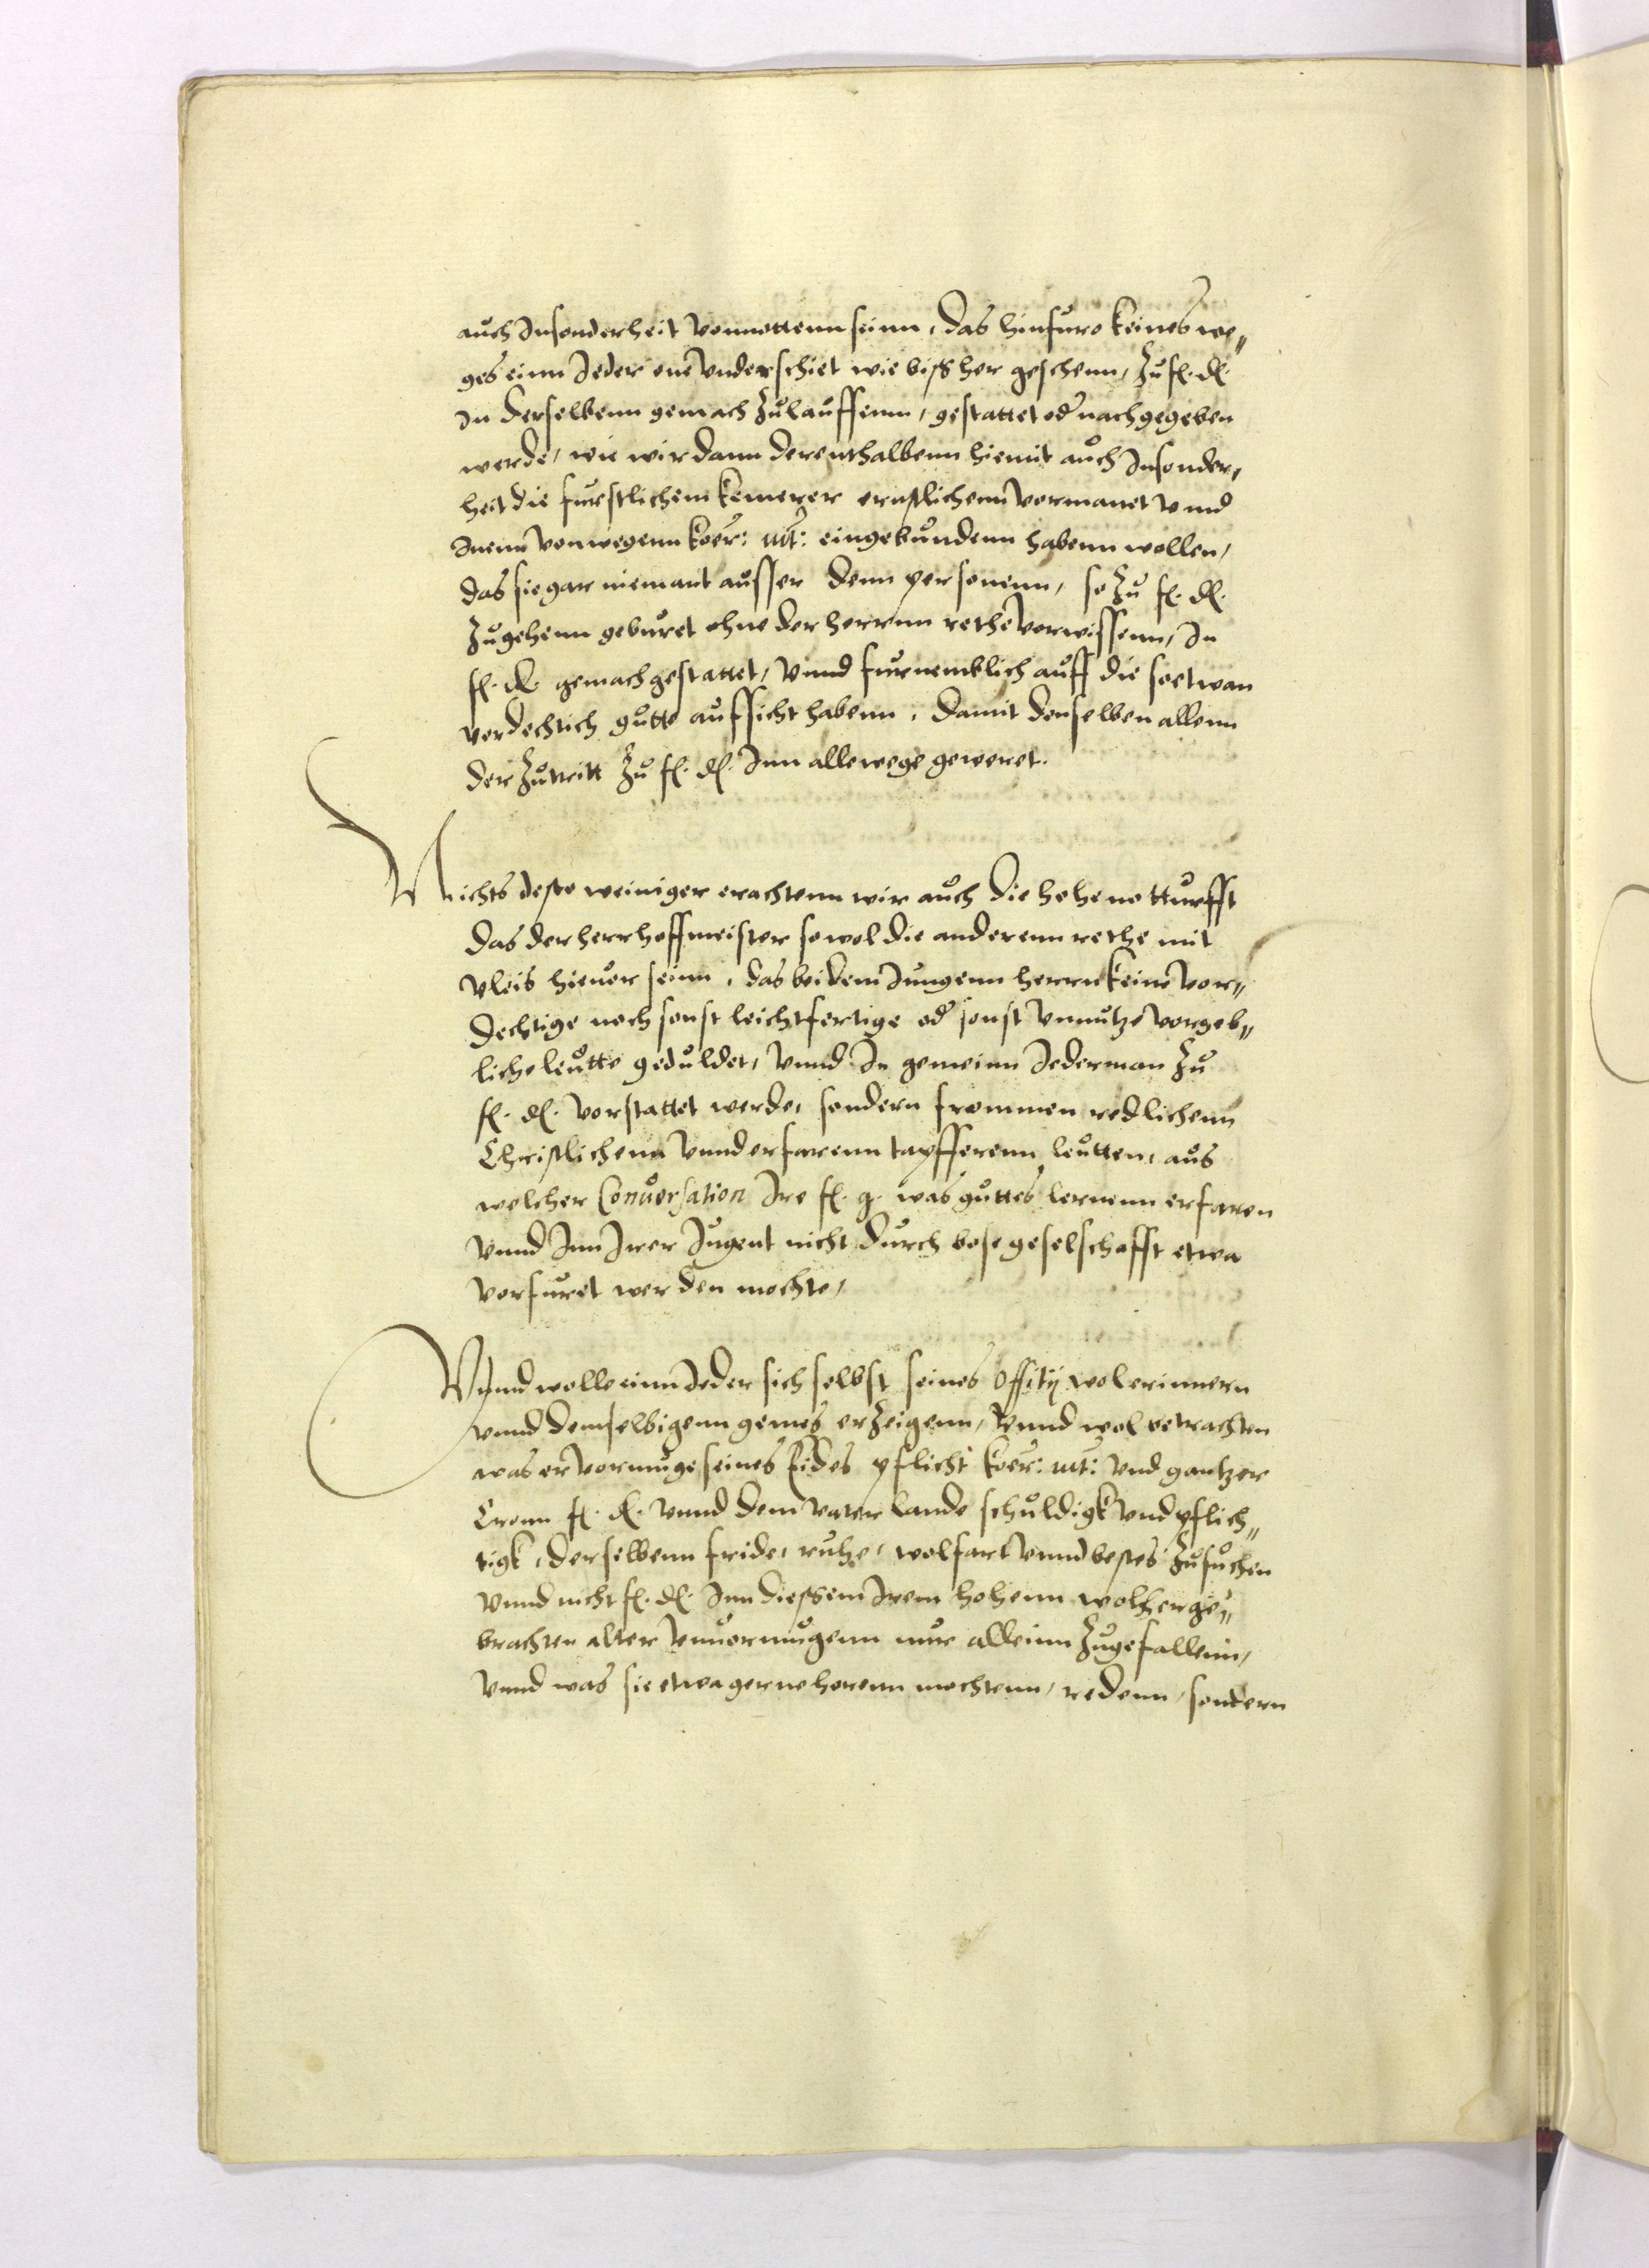 auch Insonderheit vonnottenn seinn, das hinfuro keines we„
ges einn Jeder one vnderschiet wie bissher geschenn, zu fl. dl.
In derselbenn gemach zulauffenn, gestattet od nachgegeben
werde, wie wir dann derenthalbenn hiemit auch Insonder„
heit die furstlichenn kemerer ernstlichenn vormanet vnnd
Inenn vonwegenn koer: mt: eingebundenn habenn wollen,
das sie gar niemant ausser denn personenn, so zu fl. dl.
zugehenn geburet ohne der herrnn rethe vorwissenn, In
fl. dl. gemach gestattet, vnnd furnemblich auff die so etwan
verdechtich gutte aufsicht habenn, damit denselben allenn
der zutritt zu fl. dl. Inn allewege geweret.
Nichts desto weiniger erachtenn wir auch die hohe notturfft
das der herr hoffmeister sowol die anderenn rethe mit
vleis hieuor seinn, das bei dem Jungenn herrn keine vor„
dechtige noch sonst leichtfertige od sonst vnnutze vorgeb„
liche leutte geduldet, vnnd In gemeinn Jederman zu
fl. dl. vorstattet werde, sondern frommen redlichenn
Christlichenn vnnd erfarenn tapfferenn leutten, aus
welcher Conuersation Ire fl. g. was guttes lernenn erfaren
vnnd Inn Irer Jugent nicht durch bose geselschafft etwa
vorfuret werden mochte,
Vnnd wolle einn Jeder sich selbst seines Offitij wol erinnern
vnnd demselbigenn gemes erzeigenn, vnnd wol betrachten
was er vormuge seines Eides pflicht koer: mt: vnd gantzer
Cronn fl. dl. vnnd dem vaterlande schuldigk vnd pflich„
tigk, derselbenn fride, ruhe, wolfart vnnd bestes zusuchen
vnnd nicht fl. dl. Inn diessem Irem hohenn wolherge„
brachten alter vnuormugenn nur alleinn zugefallenn,
vnnd was sie etwa gerne horenn mochtenn, redenn, sondern